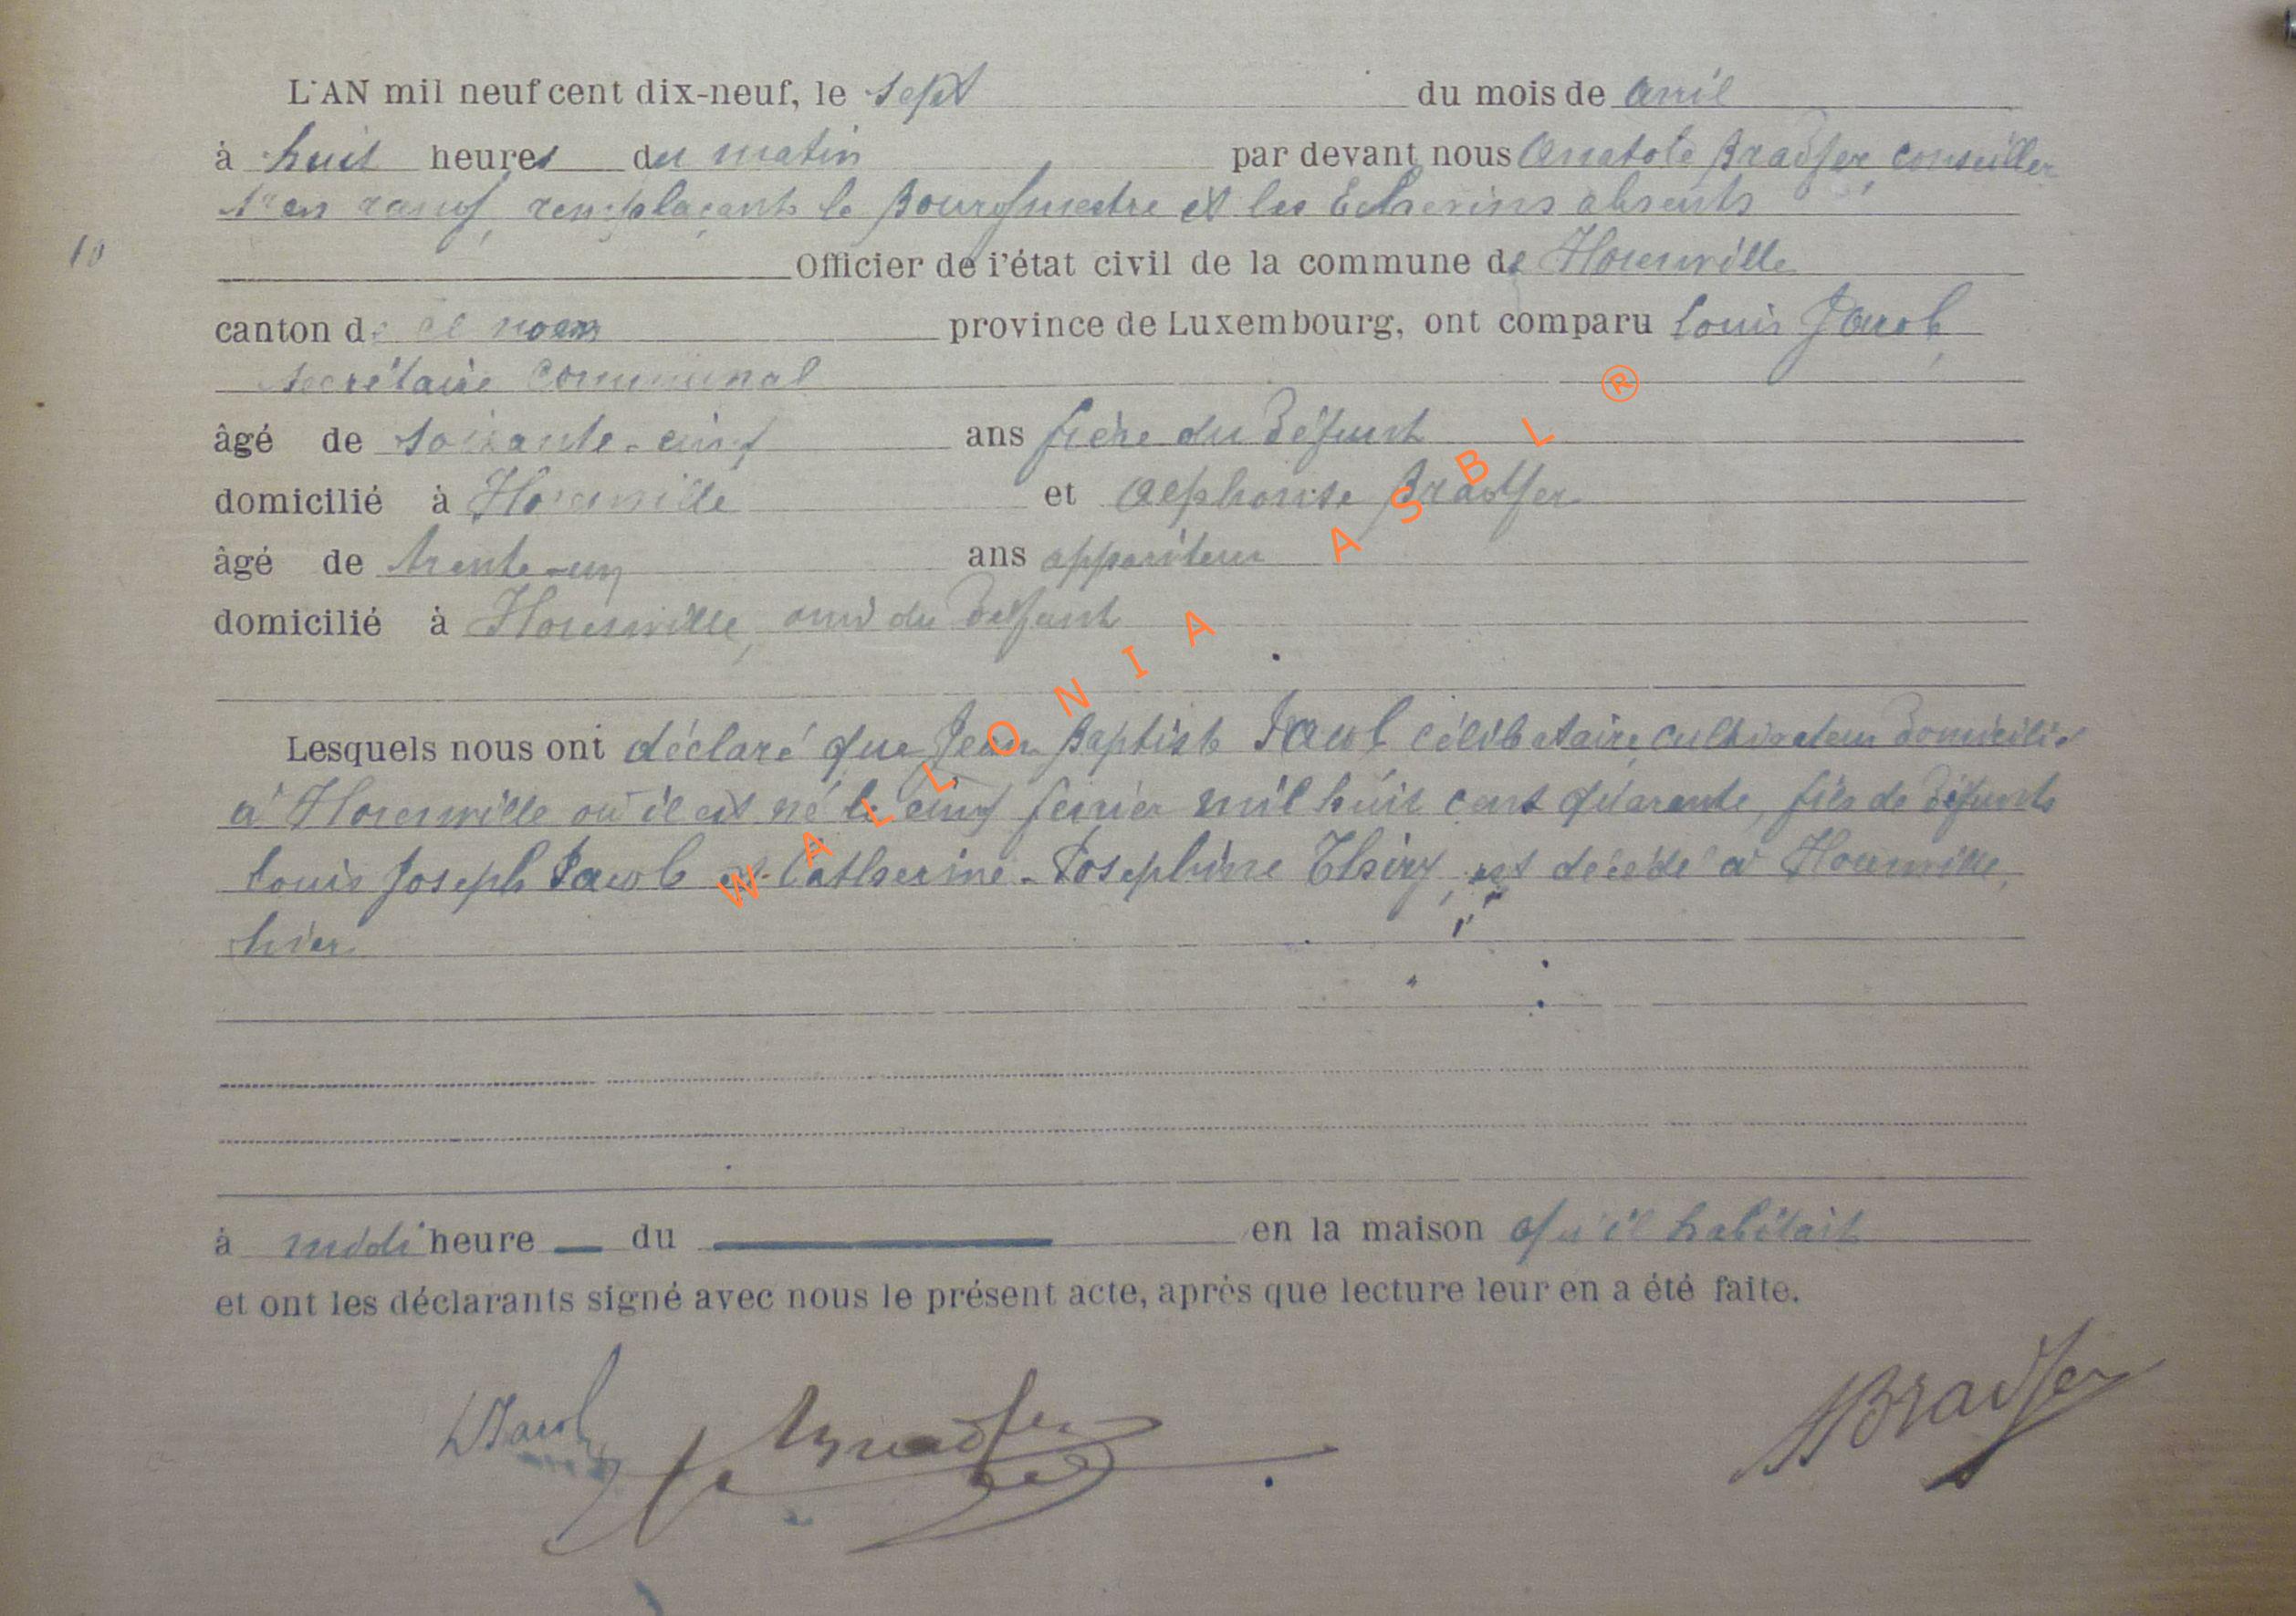 L'AN mil neuf cent dix-neuf, le sept du mois de avril
à huit heures du matin par devant nous Anatole Bradfer, conseiller
1er en rang, remplaçant le Bourgmestre et les Echevins absents
10
Officier de l'état civil de la commune de Houmville
canton de province de Luxembourg, ont comparu Louis Jacob,
secrétaire communal
âgé de soixante-cinq ans frère du défunt
domicilié à Houmville et Alphonse Bradfer
âgé de trente-un ans appariteur
domicilié à Houmville, ami du défunt
Lesquels nous ont déclaré que Jean Baptiste Jacob, célibataire, cultivateur domicilié
à Houmville où il est né le cinq février mil huit cent quarante, fils de défunts
Louis Joseph Jacob et Catherine-Josephine Thiry, est décédé à Houmville,
hier
à midi heure du en la maison qu'il habitait
et ont les déclarants signé avec nous le présent acte, après que lecture leur en a été faite.
LJacob Bradfer ABradfer
WALLONIA ASBL ®